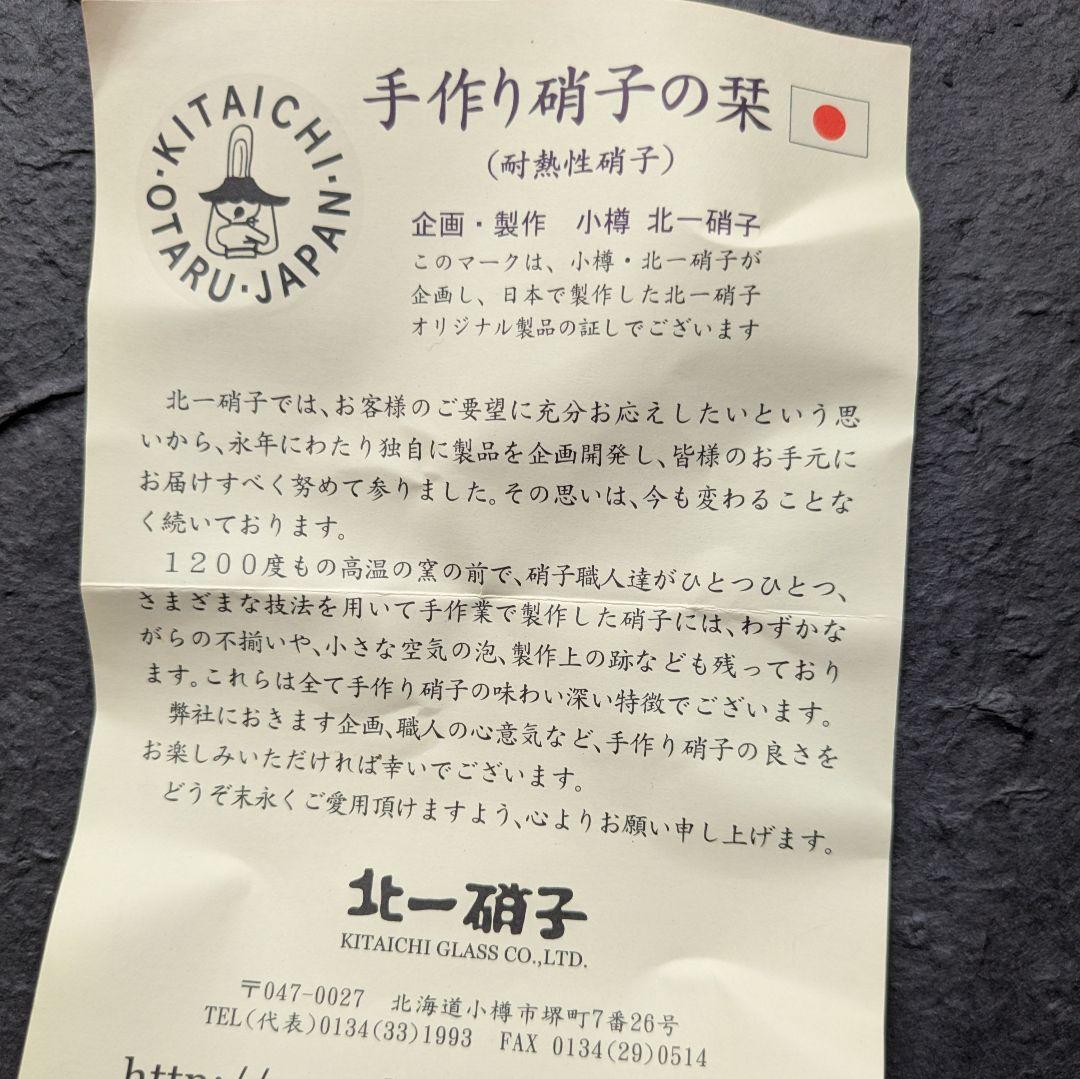 KITAICHI・OTARU・JAPAN・
手作り硝子の栞
(耐熱性硝子)
企画・製作　小樽 北一硝子
このマークは、小樽・北一硝子が
企画し、日本で製作した北一硝子
オリジナル製品の証しでございます
北一硝子では、お客様のご要望に充分お応えしたいという思
いから、永年にわたり独自に製品を企画開発し、皆様のお手元に
お届けすべく努めて参りました。その思いは、今も変わることな
く続いております。
１２００度もの高温の窯の前で、硝子職人達がひとつひとつ、
さまざまな技法を用いて手作業で製作した硝子には、わずかな
がらの不揃いや、小さな空気の泡、製作上の跡なども残っており
ます。これらは全て手作り硝子の味わい深い特徴でございます。
弊社におきます企画、職人の心意気など、手作り硝子の良さを
お楽しみいただければ幸いでございます。
どうぞ末永くご愛用頂けますよう、心よりお願い申し上げます。
北一硝子
KITAICHI GLASS CO.,LTD.
〒047-0027　北海道小樽市堺町7番26号
TEL(代表)0134(33)1993　FAX 0134(29)0514
http://